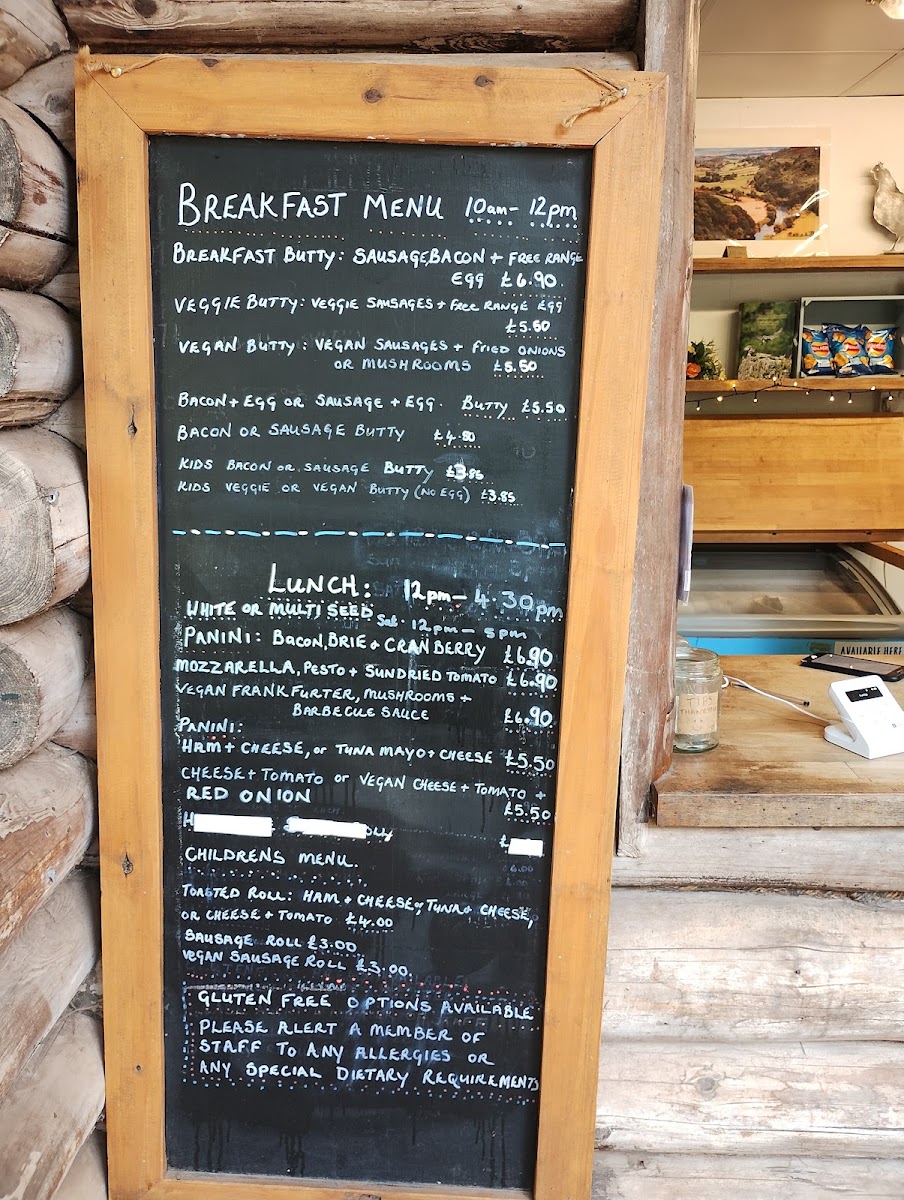 BREAKFAST MENU 10am - 12pm
BREAKFAST BUTTY: SAUSAGE,BACON + FREE RANGE
EGG £6.90.
VEGGIE BUTTY: VEGGIE SAUSAGES + FREE RANGE EGG
£5.50
VEGAN BUTTY: VEGAN SAUSAGES + FRIED ONIONS
OR MUSHROOMS £5.50
BACON + EGG OR SAUSAGE + EGG. BUTTY £5.50
BACON OR SAUSAGE BUTTY £4.50
KIDS BACON OR SAUSAGE BUTTY £3.85
KIDS VEGGIE OR VEGAN BUTTY (NO EGG) £3.85
LUNCH: 12pm - 4.30pm
WHITE OR MULTI SEED Sat. 12pm - 5pm
PANINI: BACON, BRIE + CRANBERRY £6.90
MOZZARELLA, PESTO + SUNDRIED TOMATO £6.90
VEGAN FRANKFURTER, MUSHROOMS +
BARBECUE SAUCE £6.90
PANINI:
HAM + CHEESE, or TUNA MAYO + CHEESE £5.50
CHEESE + TOMATO or VEGAN CHEESE + TOMATO +
RED ONION £5.50
CHILDRENS MENU.
TOASTED ROLL: HAM + CHEESE, TUNA + CHEESE,
OR CHEESE + TOMATO £4.00
SAUSAGE ROLL £3.00
VEGAN SAUSAGE ROLL £3.00.
GLUTEN FREE OPTIONS AVAILABLE
PLEASE ALERT A MEMBER OF
STAFF TO ANY ALLERGIES OR
ANY SPECIAL DIETARY REQUIREMENTS
AVAILABLE HERE
TIPS
THANKYOU